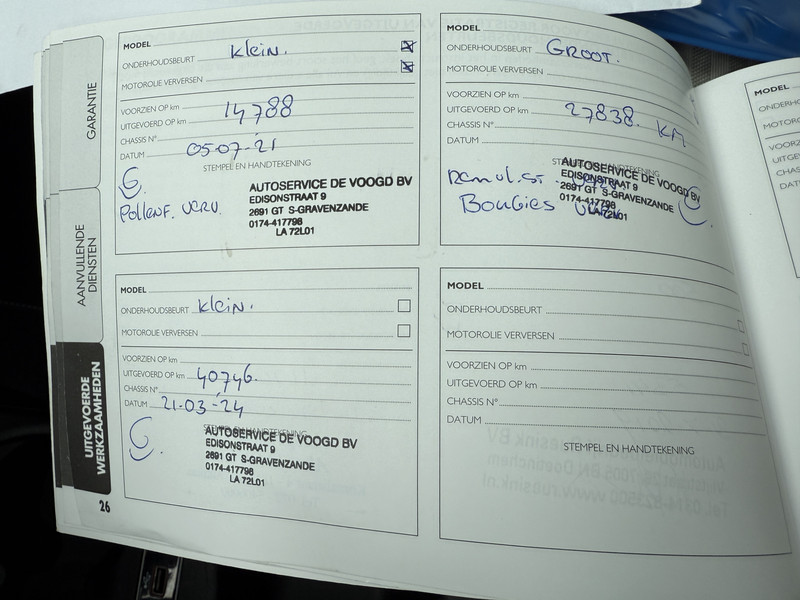 GARANTIE
AANVULLENDE
DIENSTEN
UITGEVOERDE
WERKZAAMHEDEN
26
MODEL
ONDERHOUDSBEURT Klein.
MOTOROLIE VERVERSEN
VOORZIEN OP km
UITGEVOERD OP km 14788
CHASSIS N°
DATUM 05-07-21
STEMPEL EN HANDTEKENING
Pollenf. verv.
AUTOSERVICE DE VOOGD BV
EDISONSTRAAT 9
2691 GT S-GRAVENZANDE
0174-417798
LA 72L01
MODEL
ONDERHOUDSBEURT GROOT.
MOTOROLIE VERVERSEN
VOORZIEN OP km
UITGEVOERD OP km 27838. KM
CHASSIS N°
DATUM
STEMPEL EN HANDTEKENING
Bougies
AUTOSERVICE DE VOOGD BV
EDISONSTRAAT 9
2691 GT S-GRAVENZANDE
0174-417798
LA 72L01
MODEL
ONDERHOUDSBEURT Klein.
MOTOROLIE VERVERSEN
VOORZIEN OP km
UITGEVOERD OP km 40746.
CHASSIS N°
DATUM 21-03-24
STEMPEL EN HANDTEKENING
AUTOSERVICE DE VOOGD BV
EDISONSTRAAT 9
2691 GT S-GRAVENZANDE
0174-417798
LA 72L01
MODEL
ONDERHOUDSBEURT
MOTOROLIE VERVERSEN
VOORZIEN OP km
UITGEVOERD OP km
CHASSIS N°
DATUM
STEMPEL EN HANDTEKENING
MODEL